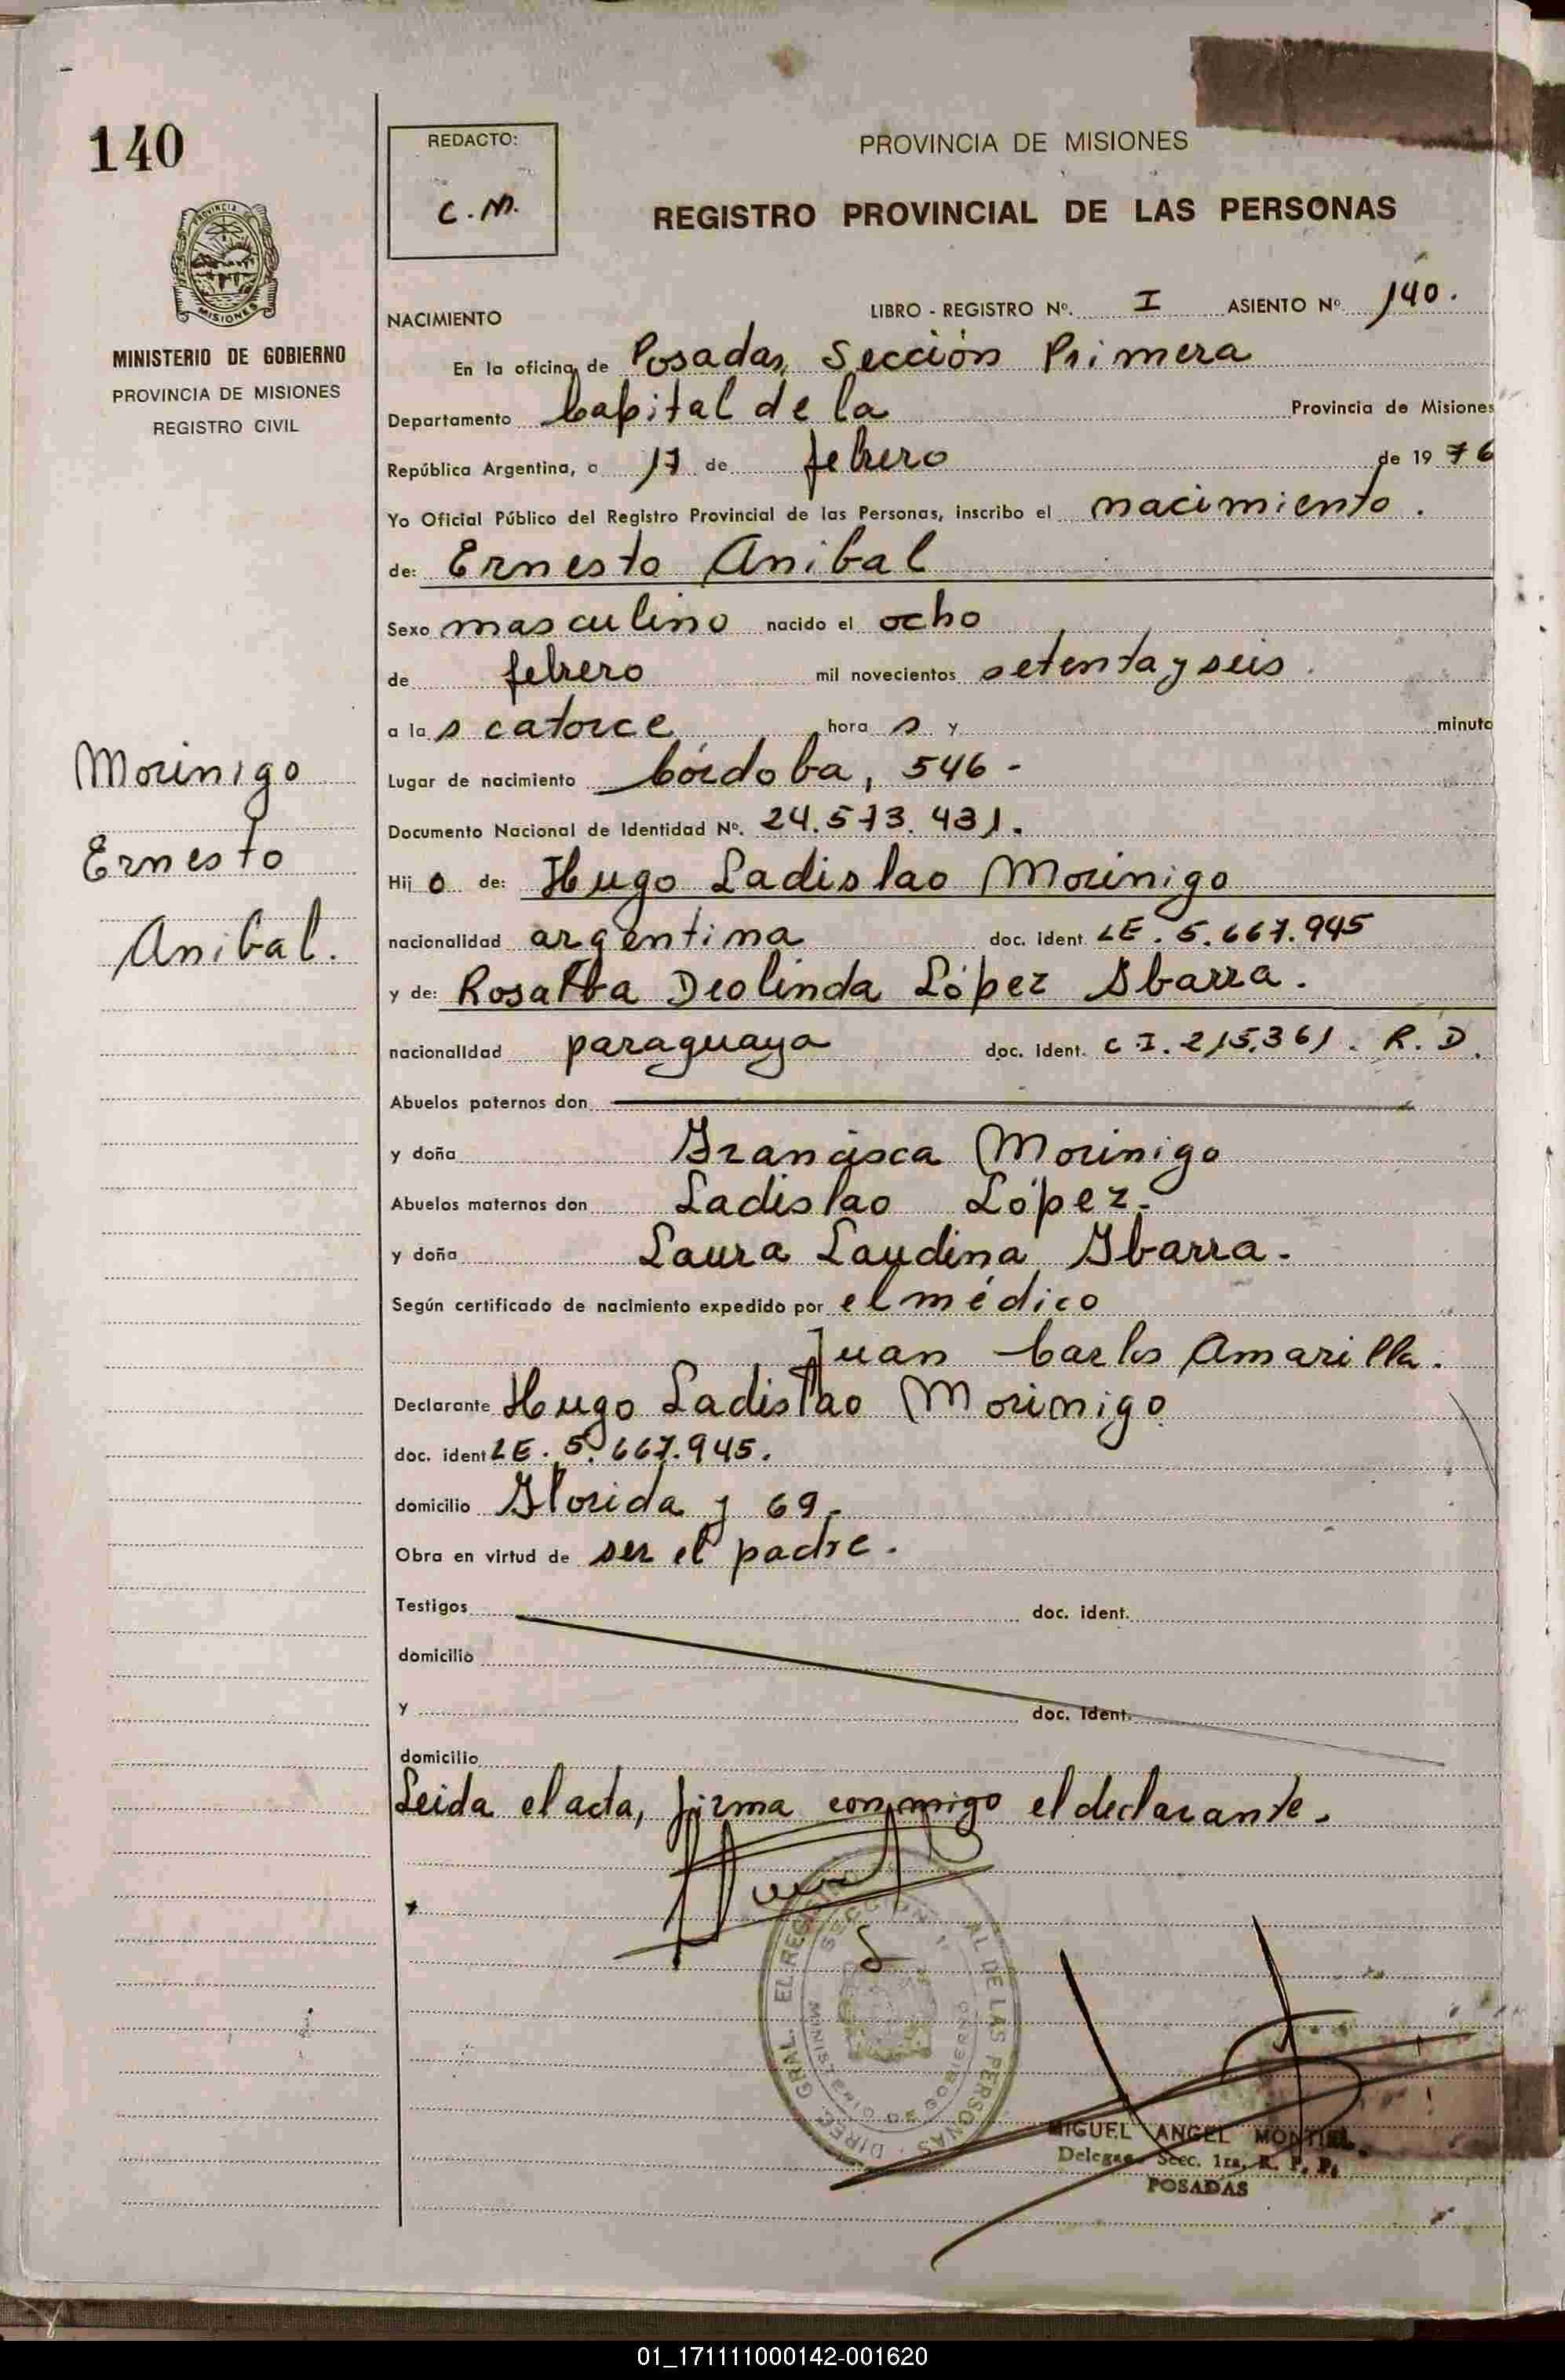 140
REDACTO:
C.M.
PROVINCIA DE MISIONES
REGISTRO PROVINCIAL DE LAS PERSONAS
PROVINCIA DE
MISIONES
MINISTERIO DE GOBIERNO
PROVINCIA DE MISIONES
REGISTRO CIVIL
NACIMIENTO LIBRO - REGISTRO Nº. I ASIENTO Nº 140.
En la oficina de Posadas, Sección Primera
Departamento Capital de la Provincia de Misiones
República Argentina, a 17 de febrero de 19 76
Yo Oficial Público del Registro Provincial de las Personas, inscribo el nacimiento.
de: Ernesto Anibal
Sexo masculino nacido el ocho
de febrero mil novecientos setenta y seis.
a la s catorce hora s y minuto
Lugar de nacimiento Córdoba, 546 -
Documento Nacional de Identidad Nº. 24.573.431.
Hij o de: Hugo Ladislao Morinigo
nacionalidad argentina doc. ident. LE. 5.667.945
y de: Rosalba Deolinda López Ibarra.
nacionalidad paraguaya doc. ident. C.I. 215.361. R.D.
Abuelos paternos don
y doña Francisca Morinigo
Abuelos maternos don Ladislao López.
y doña Laura Laudina Ibarra.
Según certificado de nacimiento expedido por el médico
Juan Carlos Amarilla.
Declarante Hugo Ladislao Morinigo
doc. ident LE. 5.667.945.
domicilio Florida y 69.
Obra en virtud de ser el padre.
Testigos doc. ident.
domicilio
y doc. ident.
domicilio
Leida el acta, firma conmigo el declarante.
Morinigo
Ernesto
Anibal.
DIREC. GRAL. EL REGISTR AL DE LAS PERSONAS
SECCION 1ª
MINISTERIO DE GOBIERNO
MIGUEL ANGEL MONTIEL
Delegado Secc. 1ra. R. P. P.
POSADAS
01_171111000142-001620